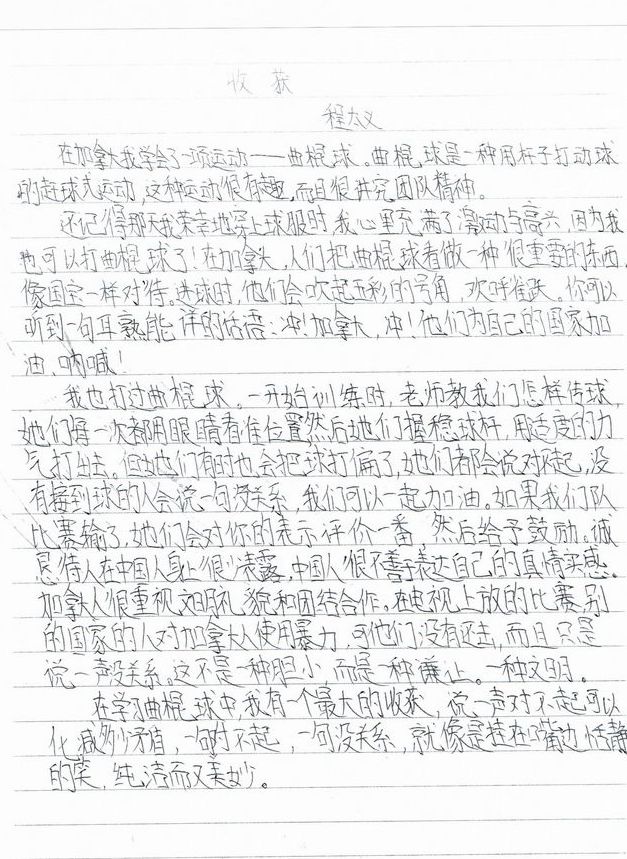 收获
程大义
在加拿大我学会了一项运动——曲棍球。曲棍球是一种用杆子打动球
的赶球式运动,这种运动很有趣,而且很讲究团队精神。
还记得那天我荣幸地穿上球服时,我心里充满了激动与高兴,因为我
也可以打曲棍球了!在加拿大,人们把曲棍球看做一种很重要的东西,
像国宝一样对待。进球时,他们会吹起五彩的号角,欢呼雀跃。你可以
听到一句耳熟能详的话语:冲!加拿大,冲!他们为自己的国家加
油、呐喊!
我也打过曲棍球。一开始训练时,老师教我们怎样传球,
她们每一次都用眼睛看准位置,然后她们握稳球杆,用适度的力
气打出去。但她们有时也会把球打偏了,她们都会说对不起,没
有接到球的人会说一句没关系,我们可以一起加油。如果我们队
比赛输了,她们会对你的表示评价一番,然后给予鼓励。诚
恳待人在中国人身上很少表露,中国人很不善于表达自己的真情实感。
加拿大人很重视文明礼貌和团结合作。在电视上放的比赛,别
的国家的人对加拿大人使用暴力,可他们没有还击,而且只是
说一声没关系。这不是一种胆小,而是一种谦让。一种文明。
在学习曲棍球中,我有一个最大的收获,说一声对不起可以
化减多少矛盾,一句对不起,一句没关系,就像是挂在嘴边恬静
的笑,纯洁而又美妙。